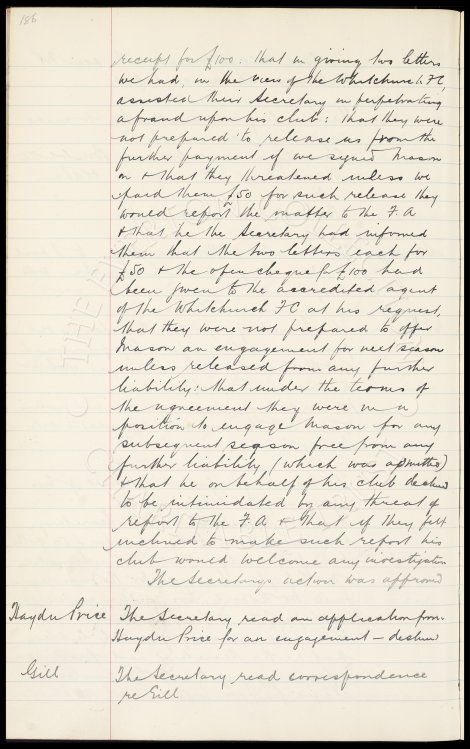 186
receipt for £100: that in giving two letters
we had in the view of the Whitchurch F.C.
assisted their Secretary in perpetrating
a fraud upon his club: that they were
not prepared to release us from the
further payment if we signed Mason
on & that they threatened unless we
paid them £50 for such release they
would report the matter to the F.A
& that he the Secretary had informed
them that the two letters each for
£50 & the open cheque for £100 had
been given to the accredited agent
of the Whitchurch FC at his request,
that they were not prepared to offer
Mason an engagement for next season
unless released from any further
liability: that under the terms of
the agreement they were in a
position to engage Mason for any
subsequent season free from any
further liability (which was admitted)
& that he on behalf of his club declined
to be intimidated by any threat of
report to the F.A & that if they felt
inclined to make such report his
club would welcome any investigation
The Secretarys action was approved
Haydn Price The Secretary read an application from
Haydn Price for an engagement – declined
Gill The Secretary read correspondence
re Gill